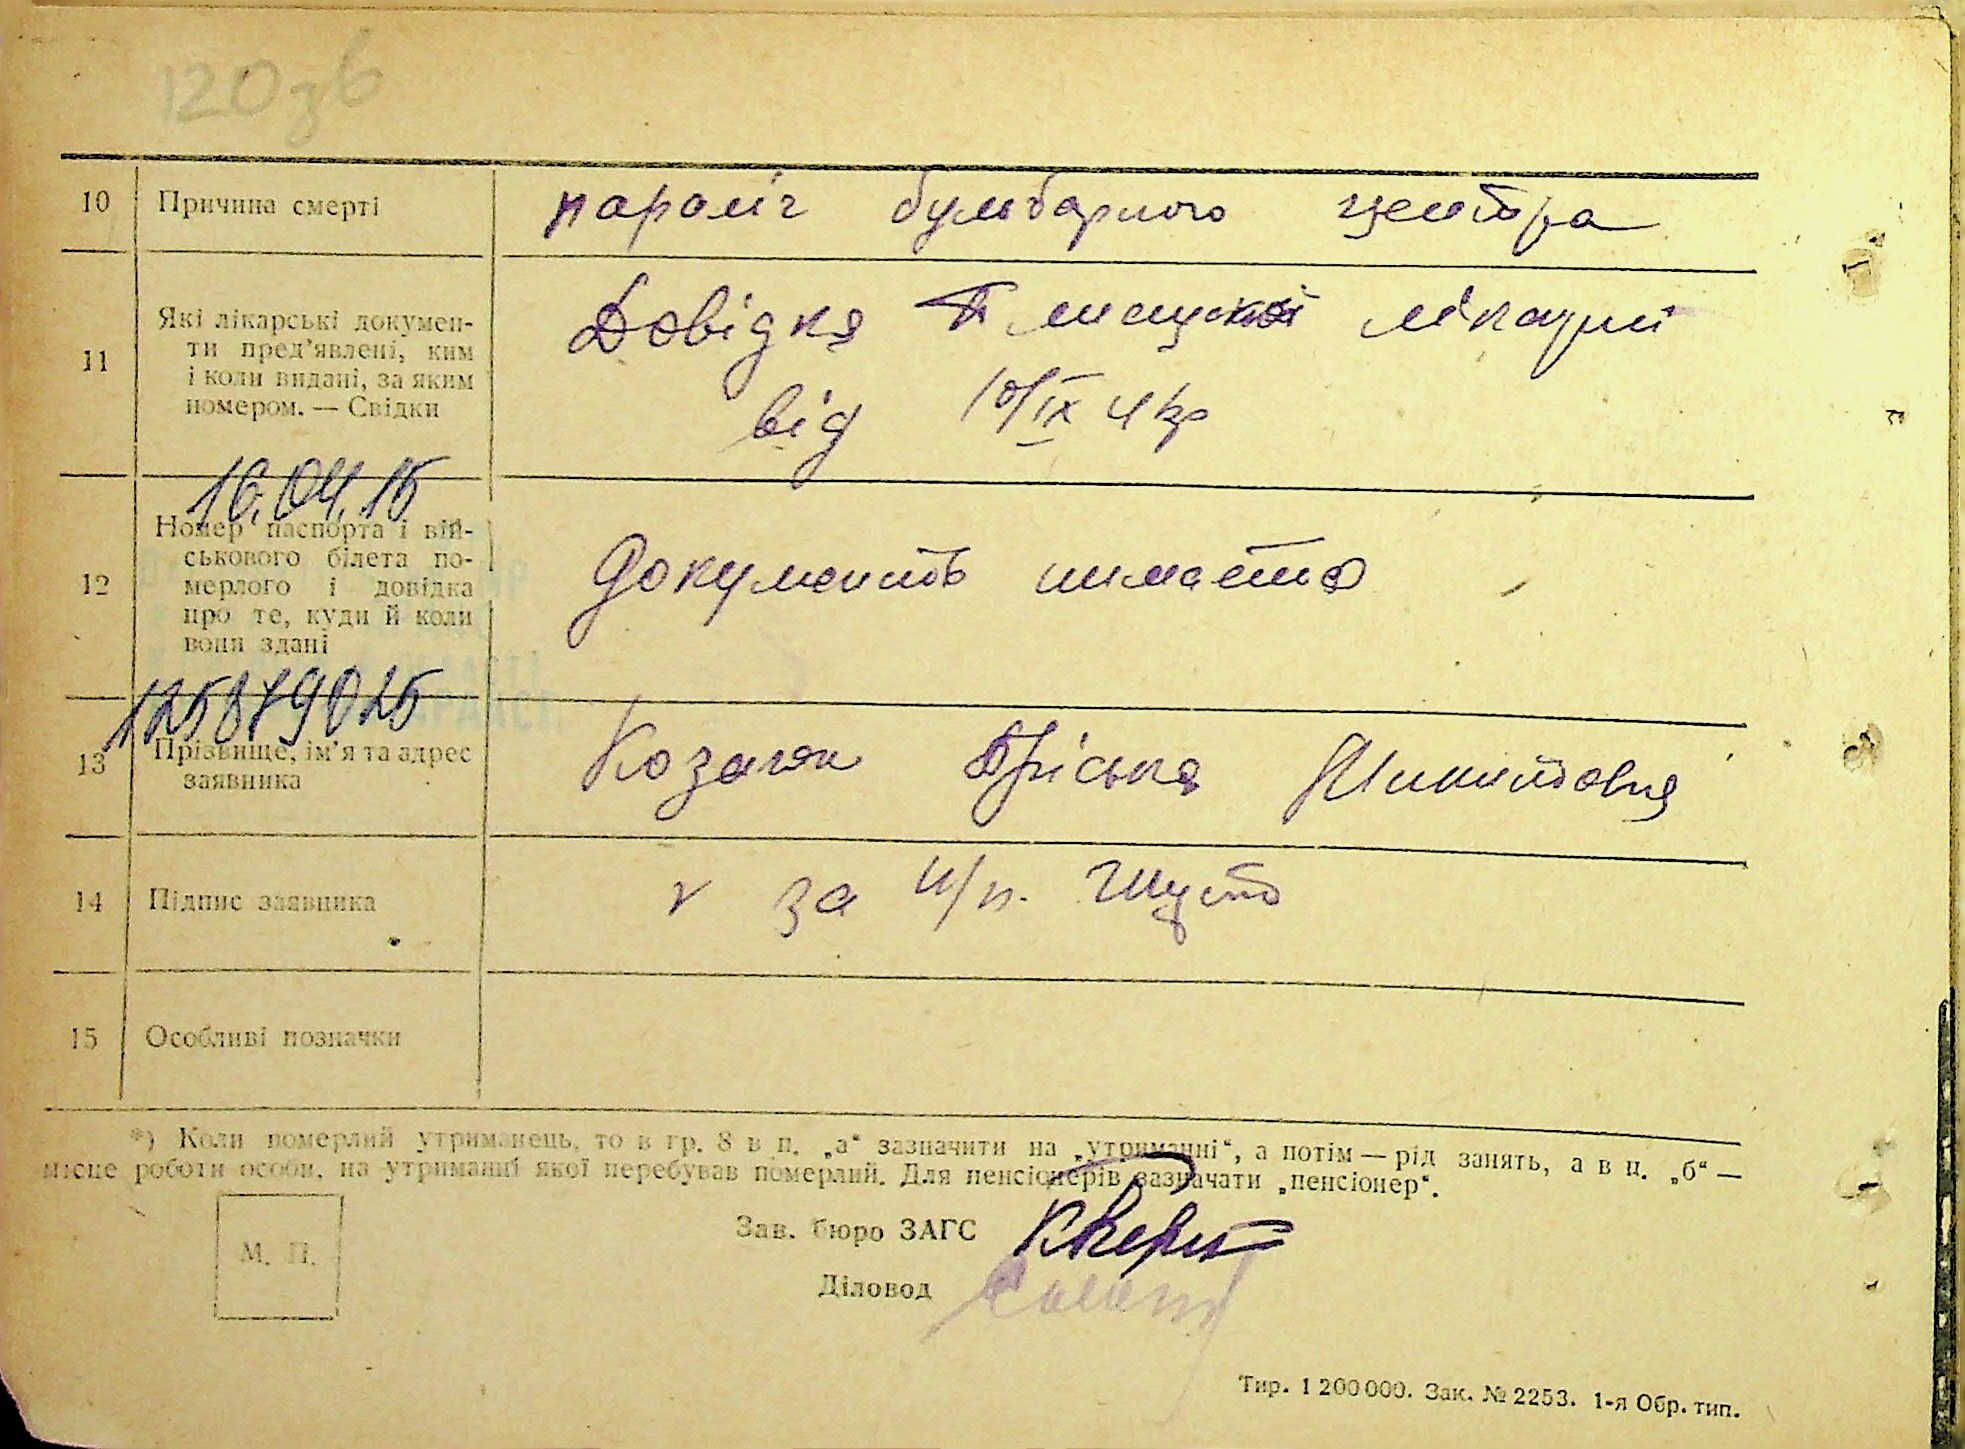 120зв
10 Причина смерті параліч бульбарного центра
11 Які лікарські докумен-
ти пред'явлені, ким
і коли видані, за яким
номером. — Свідки
Довідка лікарні
від 10/IX
16.04.15
12 Номер паспорта і вій-
ськового білета по-
мерлого і довідка
про те, куди й коли
вони здані
Документів нимаєтца
125879025
13 Прізвище, ім'я та адрес
заявника
Козачок Пріська Микитовна
14 Підпис заявника за н/п.
15 Особливі позначки
*) Коли померлий утриманець, то в гр. 8 в п. „а“ зазначити на „утриманні“, а потім — рід занять, а в п. „б“ —
місце роботи особи, на утриманні якої перебував померлий. Для пенсіонерів зазначати „пенсіонер“.
М. П.
Зав. бюро ЗАГС
Діловод
Тир. 1 200 000. Зак. № 2253. 1-я Обр. тип.